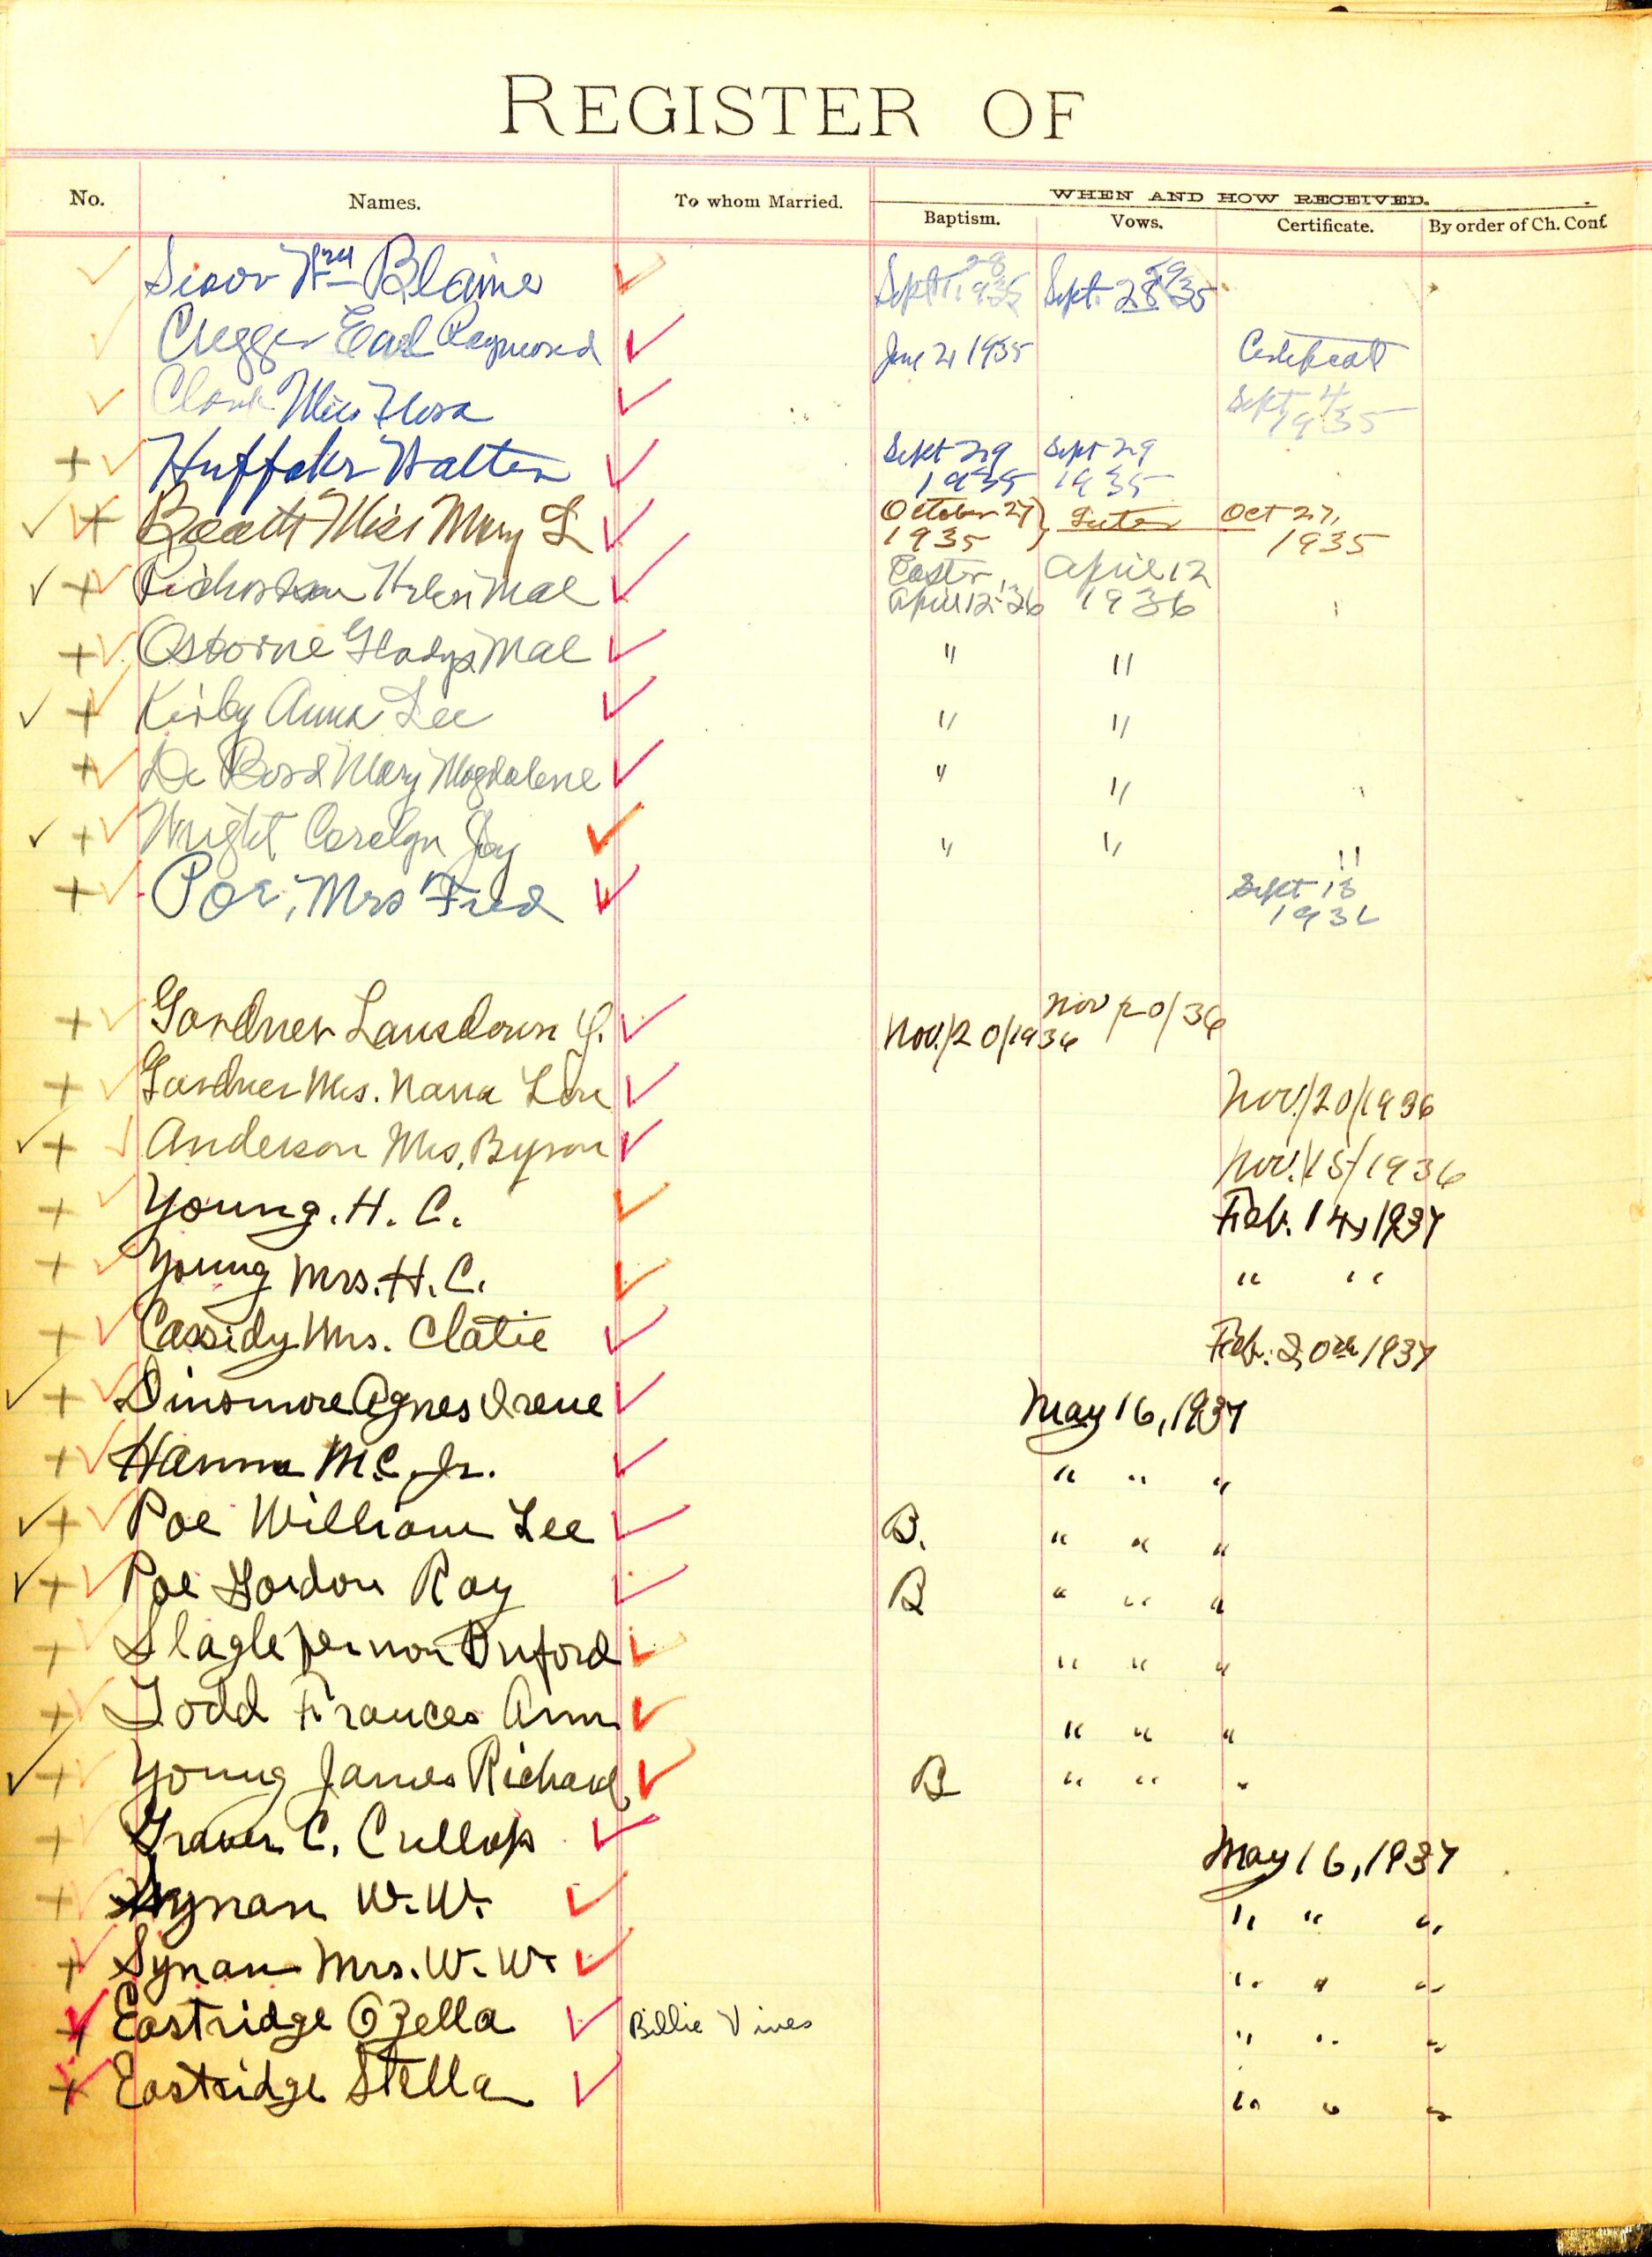 REGISTER OF
No. Names. To whom Married. WHEN AND HOW RECEIVED.
Baptism. Vows. Certificate. By order of Ch. Conf.
Wm Blaine Sept. 1935 Sept. 1935
Earl Raymond June 1935 Certificate
Clark Miss Flora Sept 4
1935
Huffaker Walter Sept 29 Sept 29
1935 1935
Miss Mary L October 27 Oct 27,
1935 1935
Helen Mae Easter, April 12
April 12-'36 1936
Osborne Gladys Mae " "
Kirby Anna Lee " "
De Bord Mary Magdalene " "
Wright Carolyn Joy " " "
Poe, Mrs Fred Sept 13
193
Gardner Lansdown Nov/20/1936 Nov 20/36
Gardner Mrs. Nana Lou Nov./20/1936
Anderson Mrs. Byron Nov. 15/1936
Young. H. C. Feb. 14, 1937
Young Mrs. H. C. " "
Cassidy Mrs. Clatie Feb. 20th 1937
Dinsmore Agnes Irene May 16, 1937
Hanna M.C. Jr. " " "
Poe William Lee B. " " "
Poe Gordon Ray B " " "
Slagle Vernon Buford " " "
Todd Frances Ann " " "
Young James Richard B " " "
Graver C. Cullop May 16, 1937
Synan W. W. " " "
Synan Mrs. W. W. " " "
Eastridge Ozella Billie Vines " " "
Eastridge Stella " " "